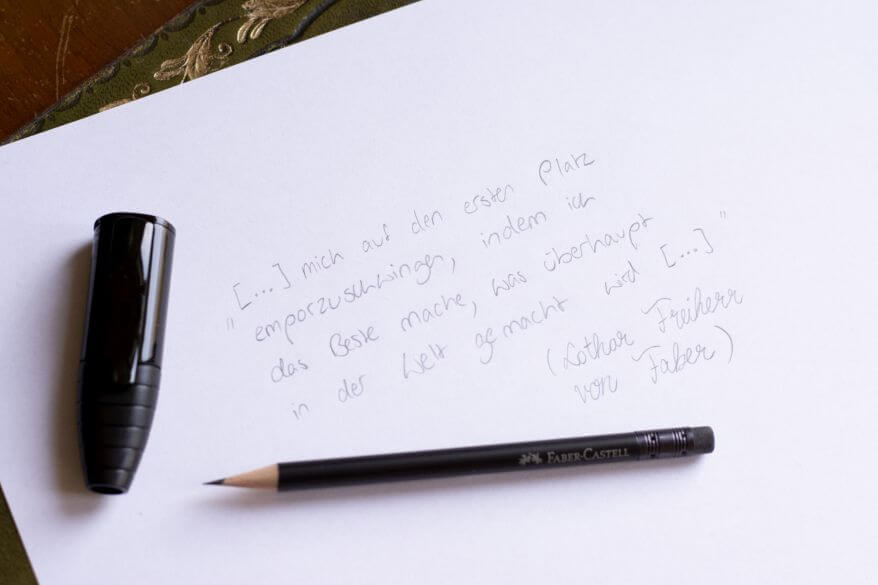 „[...] mich auf den ersten Platz
emporzuschwingen, indem ich
das Beste mache, was überhaupt
in der Welt gemacht wird [...]"
(Lothar Freiherr
von Faber)
FABER-CASTELL